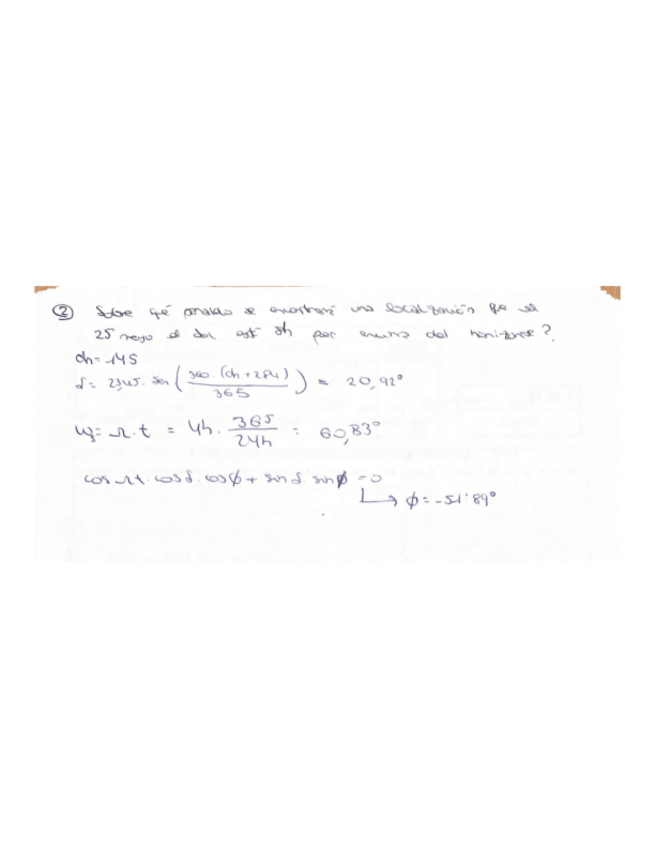 ② Sobre qé paralelo se encontrará una localización qe el
25 mayo el sol esté 8h por encima del horizonte?
dn = 145
δ = 23,45 · sen ( 360 · (dn + 284) / 365 ) = 20,92°
ωs = Ω · t = 4h · 365 / 24h = 60,83°
cos Ωt · cos δ · cos ϕ + sin δ · sin ϕ = 0
↳ ϕ = -51'89°